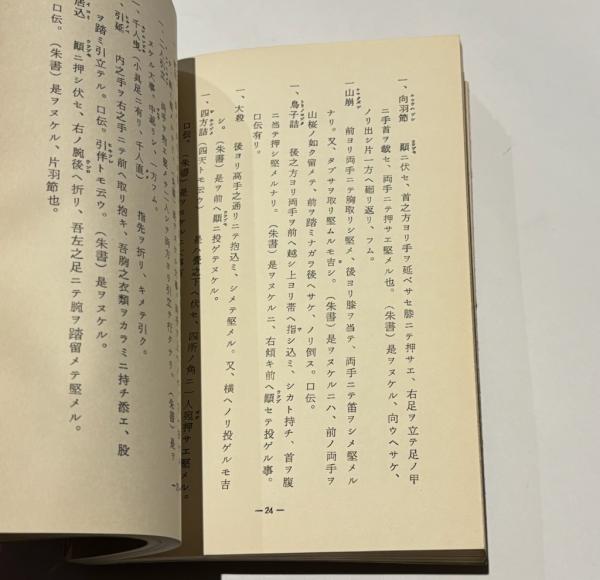 一、向羽節 顚ニ伏セ、首之方ヨリ手ヲ延ベサセ膝ニテ押サエ、右足ヲ立テ足ノ甲
ニ手首ヲ載セ、両手ニテ押サエ堅メル也。(朱書)是ヲヌケル、向ウヘサケ、
ノリ出シ片一方ヘ廻リ返リ、フム。
一山崩 前ヨリ両手ニテ胸取リシ堅メ、後ヨリ膝ヲ当テ、両手ニテ笛ヲシメ堅メル
ナリ。又、タブサヲ取リ堅ムルモ吉シ。(朱書)是ヲヌケルニハ、前ノ両手ヲ
山桜ノ如ク留メテ、前ヲ踏ミナガラ後ヘサケ、ノリ倒ス。口伝。
一、鳥子詰 後之方ヨリ両手ヲ前ヘ越シ上ヨリ帯ヘ指シ込ミ、シカト持チ、首ヲ腹
ニ当テ押シ堅メルナリ。(朱書)是ヲヌケルニ、右傾キ前ヘ顚セテ投ゲル事。
口伝有リ。
一、大殺 後ヨリ高手之通リニテ抱込ミ、シメテ堅メル。又、横ヘノリ投ゲルモ吉
シ。(朱書)是ヲ前ヘ顚ニ投ゲテヌケル。
一、四方詰(四天トモ云ウ) 是ハ畳之下ヘ伏セ、四所ノ角ニ一人宛押サエ堅メル。
口伝。(朱書)是ヲヌケル
—24—
ヌケル大事。中蹴リシ、一人フム。
一、千人曳(小具足ニ有リ、千人直) 指先ヲ折リ、キメテ引ク。
一、引延 内之手ヲ右之手ニテ前ヘ取リ抱キ、吾胸之衣類ヲカラミニ持チ添エ、股
ヲ踏ミ引立テル。口伝。引伴トモ云ウ。(朱書)是ヲヌケル。
居込 顚ニ押シ伏セ、右ノ腕後ヘ折リ、吾左之足ニテ腕ヲ踏留メテ堅メル。
口伝。(朱書)是ヲヌケル、片羽節也。